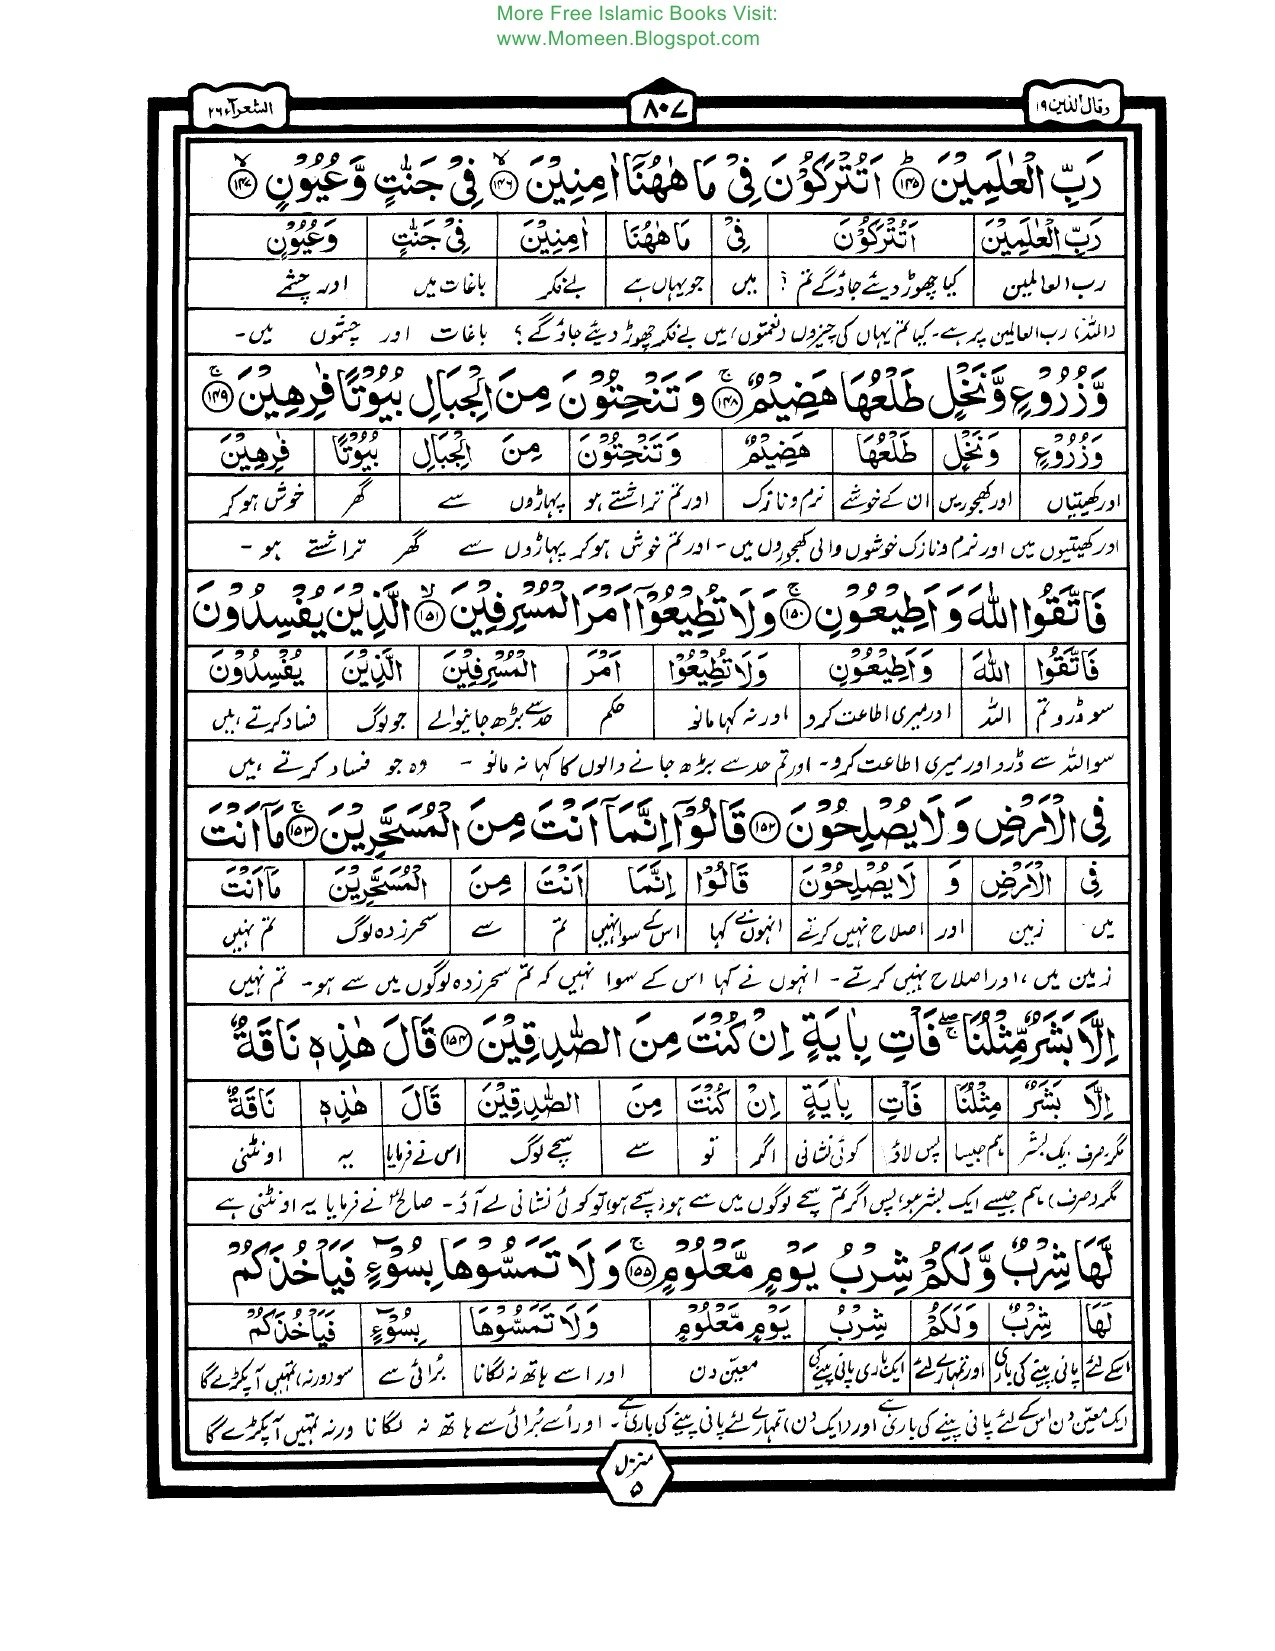 More Free Islamic Books Visit:
www.Momeen.Blogspot.com
وقال الذین ۱۹
۸۰۷
الشعرآء ۲۶
رَبِّ الْعٰلَمِیْنَ ۱۴۵ اَتُتْرَكُوْنَ فِیْ مَا هٰهُنَاۤ اٰمِنِیْنَ ۱۴۶ فِیْ جَنّٰتٍ وَّعُیُوْنٍ ۱۴۷
رَبِّ الْعٰلَمِیْنَ اَتُتْرَكُوْنَ فِیْ مَا هٰهُنَا اٰمِنِیْنَ فِیْ جَنّٰتٍ وَعُیُوْنٍ
رب العالمین کیا چھوڑ دیئے جاؤگے تم ؟ میں جو یہاں ہے بےفکر باغات میں اور چشمے
(اللہ) رب العالمین پر ہے۔ کیا تم یہاں کی چیزوں (نعمتوں) میں بے فکر چھوڑ دیئے جاؤ گے ؟ باغات اور چشموں میں۔
وَّزُرُوْعٍ وَّنَخْلٍ طَلْعُهَا هَضِیْمٌ ۱۴۸ وَتَنْحِتُوْنَ مِنَ الْجِبَالِ بُیُوْتًا فٰرِهِیْنَ ۱۴۹
وَزُرُوْعٍ وَنَخْلٍ طَلْعُهَا هَضِیْمٌ وَتَنْحِتُوْنَ مِنَ الْجِبَالِ بُیُوْتًا فٰرِهِیْنَ
اور کھیتیاں اور کھجوریں ان کے خوشے نرم و نازک اور تم تراشتے ہو پہاڑوں سے گھر خوش ہو کر
اور کھیتیوں میں اور نرم و نازک خوشوں والی کھجوروں میں۔ اور تم خوش ہو کر پہاڑوں سے گھر تراشتے ہو۔
فَاتَّقُوا اللّٰهَ وَاَطِیْعُوْنِ ۱۵۰ وَلَا تُطِیْعُوْۤا اَمْرَ الْمُسْرِفِیْنَ ۱۵۱ الَّذِیْنَ یُفْسِدُوْنَ
فَاتَّقُوا اللّٰهَ وَاَطِیْعُوْنِ وَلَا تُطِیْعُوْا اَمْرَ الْمُسْرِفِیْنَ الَّذِیْنَ یُفْسِدُوْنَ
سو ڈرو تم اللہ اور میری اطاعت کرو اور نہ کہا مانو حکم حد سے بڑھ جانیوالے جو لوگ فساد کرتے ہیں
سو اللہ سے ڈرو اور میری اطاعت کرو۔ اور تم حد سے بڑھ جانے والوں کا کہا نہ مانو ۔ وہ جو فساد کرتے ہیں
فِی الْاَرْضِ وَلَا یُصْلِحُوْنَ ۱۵۲ قَالُوْۤا اِنَّمَاۤ اَنْتَ مِنَ الْمُسَحَّرِیْنَ ۱۵۳ مَاۤ اَنْتَ
فِی الْاَرْضِ وَ لَا یُصْلِحُوْنَ قَالُوْا اِنَّمَا اَنْتَ مِنَ الْمُسَحَّرِیْنَ مَاۤ اَنْتَ
میں زمین اور اصلاح نہیں کرتے انہوں نے کہا اس کے سوا نہیں تم سے سحر زدہ لوگ تم نہیں
زمین میں، اور اصلاح نہیں کرتے۔ انہوں نے کہا اس کے سوا نہیں کہ تم سحر زدہ لوگوں میں سے ہو۔ تم نہیں
اِلَّا بَشَرٌ مِّثْلُنَا فَاْتِ بِاٰیَةٍ اِنْ كُنْتَ مِنَ الصّٰدِقِیْنَ ۱۵۴ قَالَ هٰذِهٖ نَاقَةٌ
اِلَّا بَشَرٌ مِثْلُنَا فَاْتِ بِاٰیَةٍ اِنْ كُنْتَ مِنَ الصّٰدِقِیْنَ قَالَ هٰذِهٖ نَاقَةٌ
مگر صرف ایک بشر ہم جیسا پس لاؤ کوئی نشانی اگر تو سے سچے لوگ اس نے فرمایا یہ اونٹنی
مگر (صرف) ہم جیسے ایک بشر ہو، پس اگر تم سچے لوگوں میں سے ہو (سچے ہو) تو کوئی نشانی لے آؤ۔ صالحؑ نے فرمایا یہ اونٹنی ہے
لَّهَا شِرْبٌ وَّلَكُمْ شِرْبُ یَوْمٍ مَّعْلُوْمٍ ۱۵۵ وَلَا تَمَسُّوْهَا بِسُوْٓءٍ فَیَاْخُذَكُمْ
لَهَا شِرْبٌ وَلَكُمْ شِرْبُ یَوْمٍ مَّعْلُوْمٍ وَلَا تَمَسُّوْهَا بِسُوْٓءٍ فَیَاْخُذَكُمْ
اسکے لئے پانی پینے کی باری اور تمہارے لئے ایک باری پانی پینے کی معین دن اور اسے ہاتھ نہ لگانا برائی سے سو (ورنہ) تمہیں آپکڑے گا
ایک معین دن اس کے لئے پانی پینے کی باری ہے اور (ایک دن) تمہارے لئے پانی پینے کی باری ہے۔ اور اُسے بُرائی سے ہاتھ نہ لگانا ورنہ تمہیں آپکڑے گا
منزل
۵